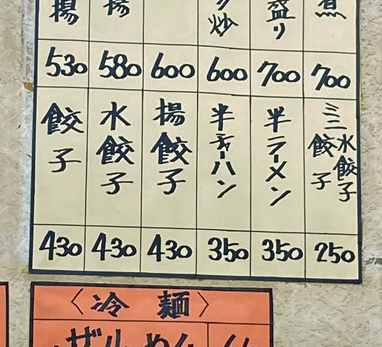 揚 揚 炒 盛り 煮
530 580 600 600 700 700
餃子 水餃子 揚餃子 半チャーハン 半ラーメン ミニ水餃子餃子
430 430 430 350 350 250
〈冷麺〉
ザル